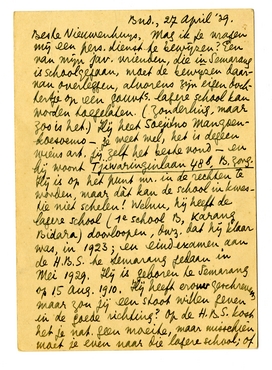 Bnd., 27 April '39.
Beste Nieuwenhuys, Mag ik je vragen
mij een pers. dienst te bewijzen? Een
van mijn jav. vrienden, die in Semarang
is schoolgegaan, moet de bewijzen daar-
van overleggen, alvorens zijn eigen doch-
tertje op een gouvts. lagere school kan
worden toegelaten. (Zonderling, maar
zoo is het.) Hij heet Soejitno Mangoen-
koesoemo – je weet wel, het is deze
wiens art. jij zelf het beste vond – en
hij woont Tjiwaringinlaan 48b, B.zorg.
Hij is op het punt mr. in de rechten te
worden, maar dat kan de school in kwes-
tie niet schelen! Welnu, hij heeft de
lagere school (1e school B, Karang
Bidara) doorlopen, dwz. dat hij klaar
was, in 1923; en eindexamen, aan
de H.B.S. te Semarang gedaan in
Mei 1929. Hij is geboren te Semarang
op 15 Aug. 1910. Hij heeft erover geschreven,
maar zou jij een stoot willen geven
in de goede richting? Op de H.B.S. kost
het je nat. geen moeite, maar misschien
moet je even naar die lagere school; of